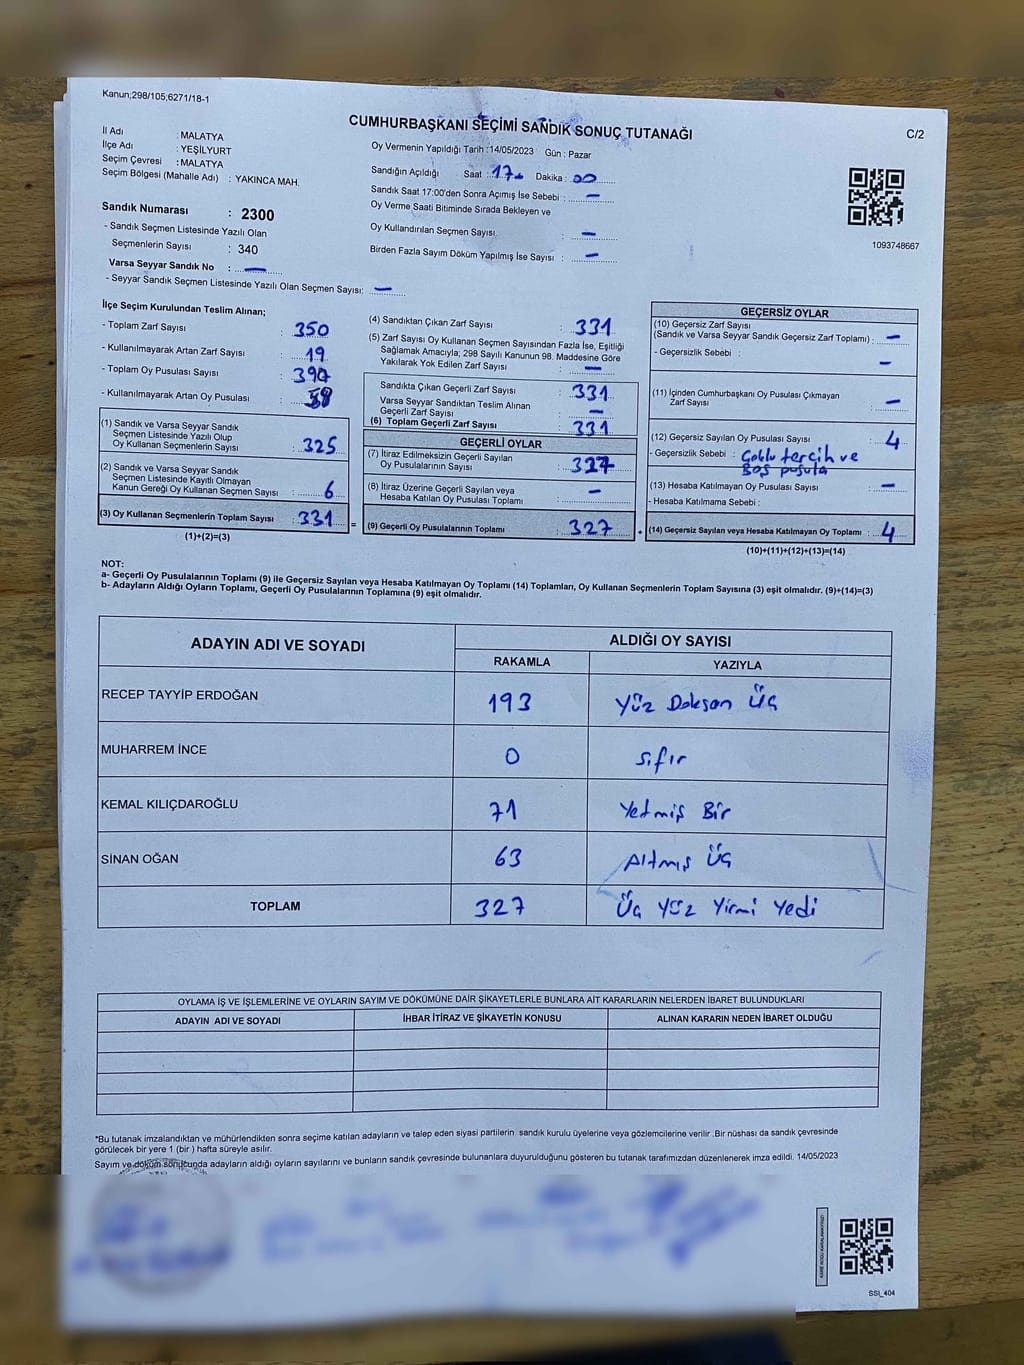 Kanun;298/105;6271/18-1
CUMHURBAŞKANI SEÇİMİ SANDIK SONUÇ TUTANAĞI
C/2
İl Adı : MALATYA
İlçe Adı : YEŞİLYURT
Seçim Çevresi : MALATYA
Seçim Bölgesi (Mahalle Adı) : YAKINCA MAH.
Oy Vermenin Yapıldığı Tarih :14/05/2023 Gün : Pazar
Sandığın Açıldığı Saat : 17 Dakika : 00
Sandık Saat 17:00'den Sonra Açımış İse Sebebi : —
Oy Verme Saati Bitiminde Sırada Bekleyen ve
Oy Kullandırılan Seçmen Sayısı : —
Birden Fazla Sayım Döküm Yapılmış İse Sayısı : —
1093748667
Sandık Numarası : 2300
- Sandık Seçmen Listesinde Yazılı Olan
Seçmenlerin Sayısı : 340
Varsa Seyyar Sandık No : —
- Seyyar Sandık Seçmen Listesinde Yazılı Olan Seçmen Sayısı: —
İlçe Seçim Kurulundan Teslim Alınan;
- Toplam Zarf Sayısı : 350
- Kullanılmayarak Artan Zarf Sayısı : 19
- Toplam Oy Pusulası Sayısı : 390
- Kullanılmayarak Artan Oy Pusulası :
(1) Sandık ve Varsa Seyyar Sandık
Seçmen Listesinde Yazılı Olup
Oy Kullanan Seçmenlerin Sayısı : 325
(2) Sandık ve Varsa Seyyar Sandık
Seçmen Listesinde Kayıtlı Olmayan
Kanun Gereği Oy Kullanan Seçmen Sayısı : 6
(3) Oy Kullanan Seçmenlerin Toplam Sayısı : 331
(1)+(2)=(3)
=
(4) Sandıktan Çıkan Zarf Sayısı : 331
(5) Zarf Sayısı Oy Kullanan Seçmen Sayısından Fazla İse, Eşitliği
Sağlamak Amacıyla; 298 Sayılı Kanunun 98. Maddesine Göre
Yakılarak Yok Edilen Zarf Sayısı : —
Sandıkta Çıkan Geçerli Zarf Sayısı : 331
Varsa Seyyar Sandıktan Teslim Alınan
Geçerli Zarf Sayısı : —
(6) Toplam Geçerli Zarf Sayısı : 331
GEÇERLİ OYLAR
(7) İtiraz Edilmeksizin Geçerli Sayılan
Oy Pusulalarının Sayısı : 327
(8) İtiraz Üzerine Geçerli Sayılan veya
Hesaba Katılan Oy Pusulası Toplamı : —
(9) Geçerli Oy Pusulalarının Toplamı : 327
+
GEÇERSİZ OYLAR
(10) Geçersiz Zarf Sayısı
(Sandık ve Varsa Seyyar Sandık Geçersiz Zarf Toplamı) : —
- Geçersizlik Sebebi : —
(11) İçinden Cumhurbaşkanı Oy Pusulası Çıkmayan
Zarf Sayısı : —
(12) Geçersiz Sayılan Oy Pusulası Sayısı : 4
- Geçersizlik Sebebi : Çoklu tercih ve
Boş pusula
(13) Hesaba Katılmayan Oy Pusulası Sayısı : —
- Hesaba Katılmama Sebebi :
(14) Geçersiz Sayılan veya Hesaba Katılmayan Oy Toplamı : 4
(10)+(11)+(12)+(13)=(14)
NOT:
a- Geçerli Oy Pusulalarının Toplamı (9) ile Geçersiz Sayılan veya Hesaba Katılmayan Oy Toplamı (14) Toplamları, Oy Kullanan Seçmenlerin Toplam Sayısına (3) eşit olmalıdır. (9)+(14)=(3)
b- Adayların Aldığı Oyların Toplamı, Geçerli Oy Pusulalarının Toplamına (9) eşit olmalıdır.
ADAYIN ADI VE SOYADI
ALDIĞI OY SAYISI
RAKAMLA YAZIYLA
RECEP TAYYİP ERDOĞAN 193 Yüz Doksan Üç
MUHARREM İNCE 0 Sıfır
KEMAL KILIÇDAROĞLU 71 Yetmiş Bir
SİNAN OĞAN 63 Altmış Üç
TOPLAM 327 Üç Yüz Yirmi Yedi
OYLAMA İŞ VE İŞLEMLERİNE VE OYLARIN SAYIM VE DÖKÜMÜNE DAİR ŞİKAYETLERLE BUNLARA AİT KARARLARIN NELERDEN İBARET BULUNDUKLARI
ADAYIN ADI VE SOYADI İHBAR İTİRAZ VE ŞİKAYETİN KONUSU ALINAN KARARIN NEDEN İBARET OLDUĞU
*Bu tutanak imzalandıktan ve mühürlendikten sonra seçime katılan adayların ve talep eden siyasi partilerin sandık kurulu üyelerine veya gözlemcilerine verilir .Bir nüshası da sandık çevresinde
görülecek bir yere 1 (bir ) hafta süreyle asılır.
Sayım ve döküm sonucunda adayların aldığı oyların sayılarını ve bunların sandık çevresinde bulunanlara duyurulduğunu gösteren bu tutanak tarafımızdan düzenlenerek imza edildi. 14/05/2023
KARE KODU KARALAMAYINIZ!
SSL_404